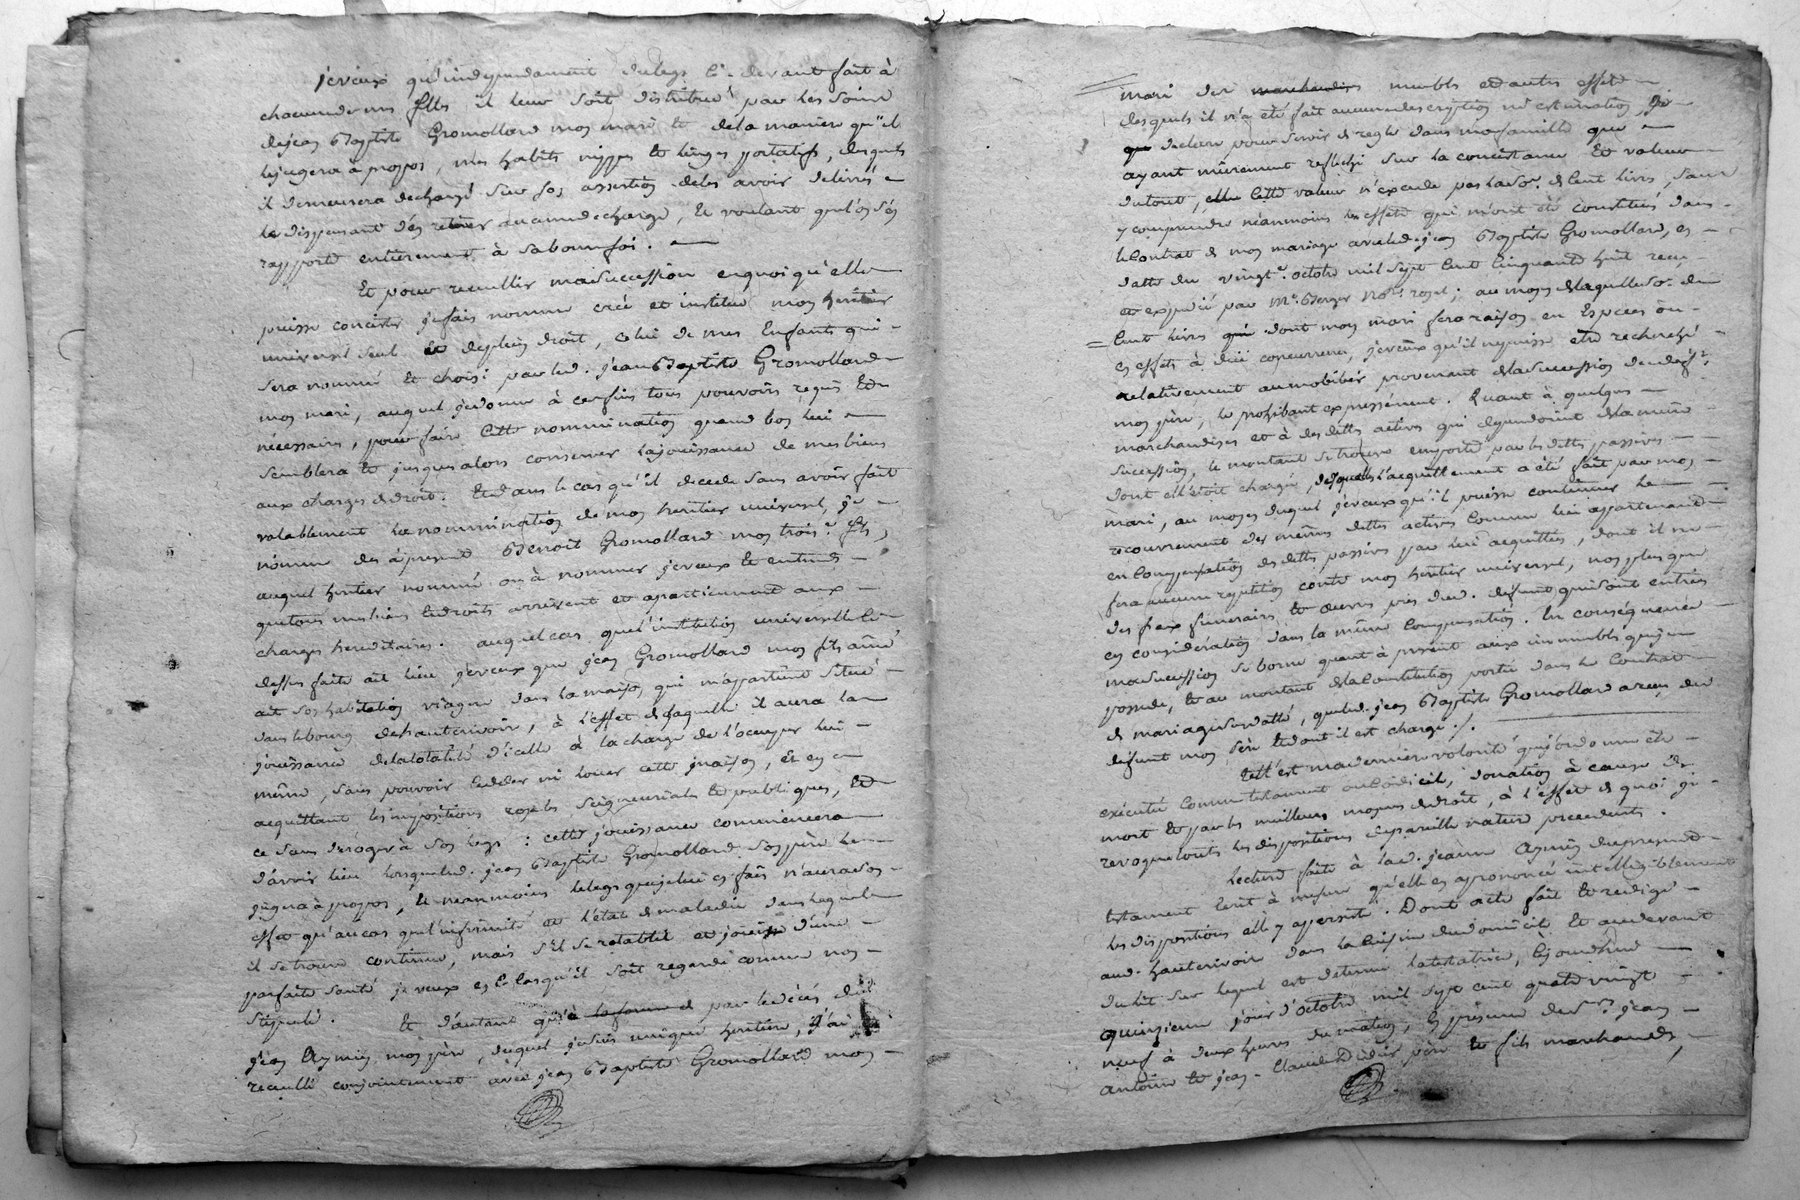 jeveux qu'independament du legs ci-devant fait à
chacune de mes filles il leur soit distribué par les soins
dejean Baptiste Gromollard mon mari et dela maniere qu'il
lejugera à propos, mes habits nippes et linges portatifs, desquels
il demeurera dechargé sur son assertion deles avoir delivrés
le dispensant d'en retirer aucune decharge, et voulant qu'on s'en
rapporte entièrement à sa bonne foi.
Et pour recueillir masuccession enquoi qu'elle
puisse concister jefais nomme créé et institue mon heritier
universel seul et deplein droit, celui de mes Enfants qui
sera nommé et choisi parled. jean Baptiste Gromollard
mon mari, auquel jedonne à cesfins tous pouvoirs requis et
nécessaires, pour faire cette nommination quand bon lui
semblera et jusques alors conserver lajouissance de mes biens
aux charges dedroit. Et dans le cas qu'il decede sans avoir fait
valablement la nommination de mon heritier universel, je
nomme des àpresent Benoit Gromollard mon trois.e fils,
auquel heritier nommé ou à nommer jeveux et entends
quetous mesbiens et droits arrivent et apartiennent aux
charges hereditaires. auquel cas quel'institution universelle ci
dessus faite ait lieu jeveux que jean Gromollard mon fils ainé
ait son habitation viagere dans la maison qui m'appartient située
dans lebourg dehauterivoire, à l'effet de laquelle il aura la
jouissance delatotalité d'icelle à la charge de l'occuper lui
même, sans pouvoir cedder ni louer cette maison, et en
acquittant les impositions royales, seigneuriales et publiques, et
ce sans déroger à son legs : cette jouissance commencera
d'avoir lieu lorsqueled. jean Baptiste Gromollard son père le
jugera à propos, et neanmoins lelegs quejelui en fais n'aura son
effet qu'aucas quel'infirmité et l'état de maladie dans laquelle
il setrouve continue, mais s'il se retablit et jouisse d'une
parfaite santé je veux en ce cas qu'il soit regardé comme non
stipulé. Et d'autant qu'à la forme d par ledécès de
jean Aymin mon père, duquel jesuis unique heritiere, j'ai
recueilli conjointement avec jean Baptiste Gromollard mon
mari des marchandises meubles et autres effets
desquels il n'a été fait aucune description ni estimation, je
que declare pour servir de regle dans mafamille que
ayant mûrement reflechi sur la concistance et valeur
dutout, cette valeur n'excede pas la so.e de cent livres, sans
y comprendre néanmoins les effets qui m'ont été constitués dans
lecontrat de mon mariage avecled. jean Baptiste Gromollard, en
datte du vingt octobre mil sept cent cinquante huit recu
et expedié par M.e Berger No.re royal; au moyen delaquelle so.e de
cent livres qui dont mon mari fera raison en Especes ou
en effets à due concurrence, jeveux qu'il nepuisse etre recherché
relativement aumobilier provenant delasuccession dudeft
mon père, le prohibant expressément. Quant à quelques
marchandises et à des dettes actives qui dependoient delamême
succession, le montant setrouve emporté par les dettes passives
dont elle étoit chargée, desquels l'acquittement a été fait par mon
mari, au moyen duquel jeveux qu'il puisse continuer le
recouvrement des mêmes dettes actives comme lui appartenant
en compensation des dettes passives par lui acquittées, dont il ne
fera aucune repetition contre mon heritier universel, non plus que
des frais funeraires et œuvres pies dud. defunt qui sont entrées
en considération dans la même compensation. En conséquence
masuccession se borne quant à présent aux immeubles queje
possede, et au montant delaconstitution portée dans le contrat
de mariage susdatté, queled. jean Baptiste Gromollard a recu du
defunt mon père et dont il est chargé./.
Telle est maderniere volonté quej'ordonne être
exécutée comme testament ou codicil, donation à cause de
mort et par les meilleurs moyens dedroit, à l'effet de quoi je
revoque toutes les dispositions depareille nature precedentes.
Lecture faite à lad. jeanne Aymin dupresent
testament écrit à mesure qu'elle en a prononcé intelligiblement
les dispositions elle y a persisté. Dont acte fait et redigé
aud. hauterivoire dans la cuisine dudomicile et audevant
dulit sur lequel est detenue latestatrice, cejourdhui
quinzieme jour d'octobre mil sept cent quatre vingt
neuf à deux heures du matin, en presence des s.rs jean
Antoine et jean-Claude Didier père et fils marchands,